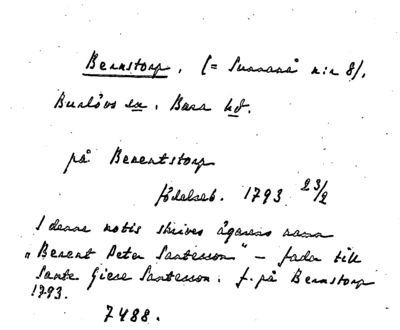 Bernstorp. (= Sunnanå n:r 8).
Burlövs sn. Bara hd.
på Berentstorp
födelseb. 1793 23/2
I denna notis skrives ägarens namn
"Berent Peter Santesson" – fader till
Sante Giese Santesson. f. på Bernstorp
1793.
7488.